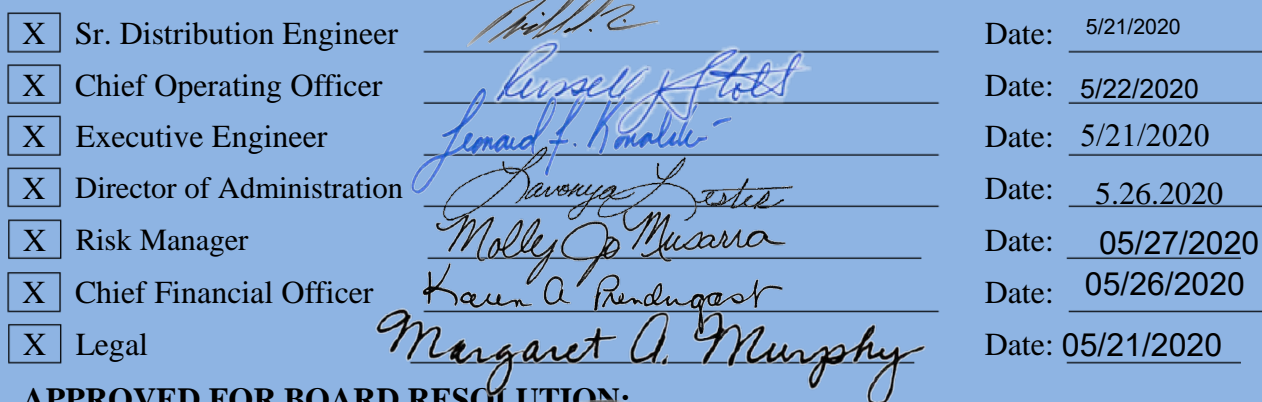 X Sr. Distribution Engineer Date: 5/21/2020
X Chief Operating Officer Russell J Stoll Date: 5/22/2020
X Executive Engineer Leonard F. Kowalski Date: 5/21/2020
X Director of Administration Lavonya Lester Date: 5.26.2020
X Risk Manager Molly Jo Musarra Date: 05/27/2020
X Chief Financial Officer Karen A Prendergast Date: 05/26/2020
X Legal Margaret A. Murphy Date: 05/21/2020
APPROVED FOR BOARD RESOLUTION: